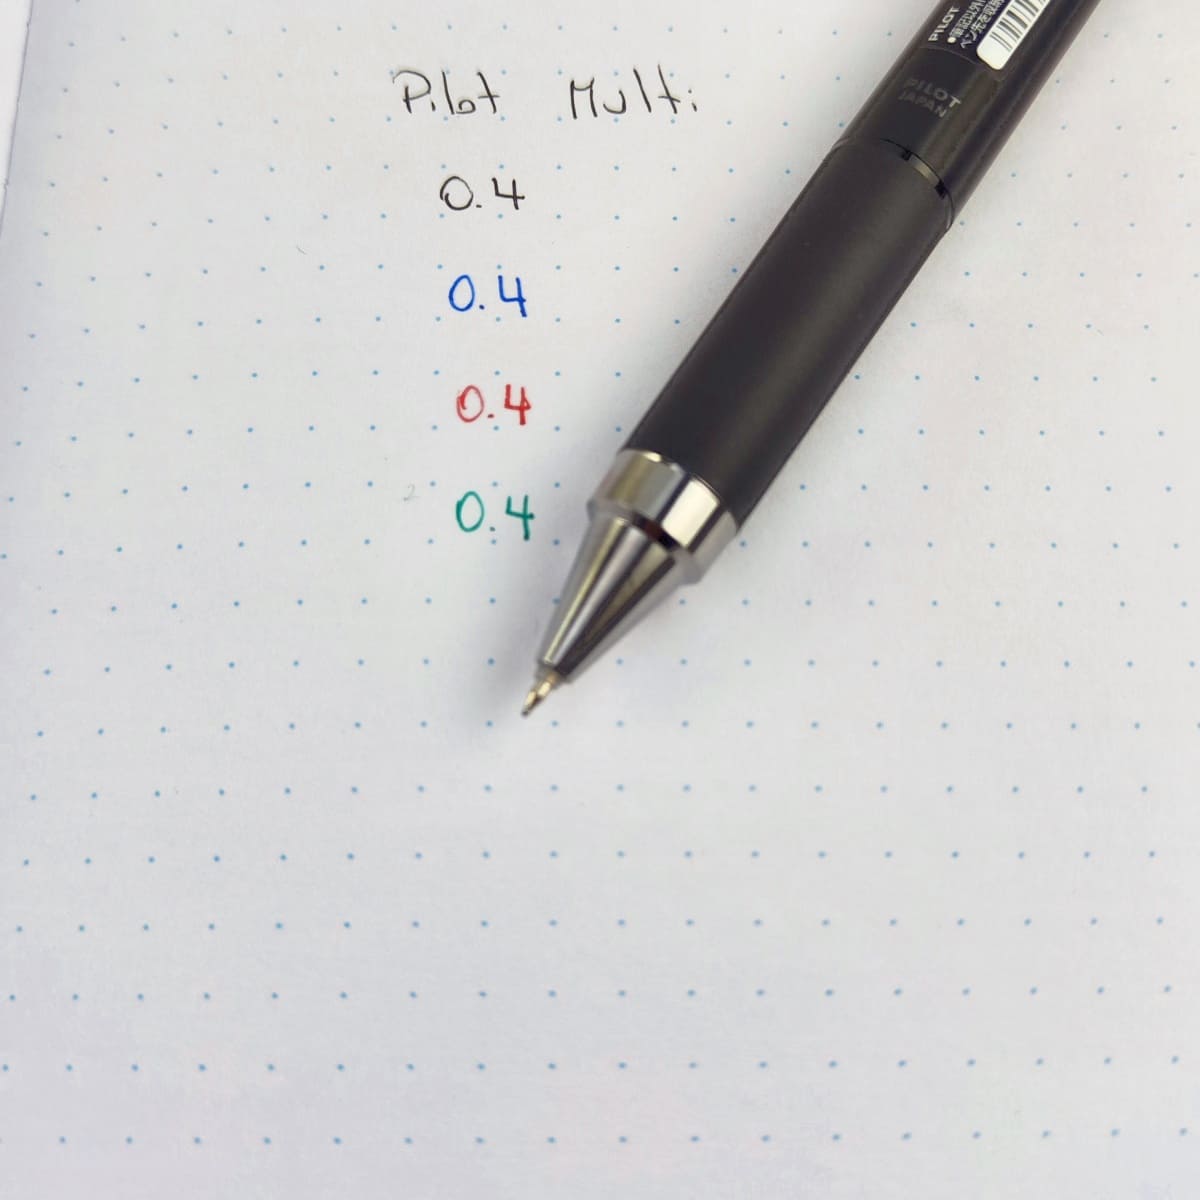 Pilot Multi
0.4
0.4
0.4
0.4
PILOT
JAPAN
PILOT